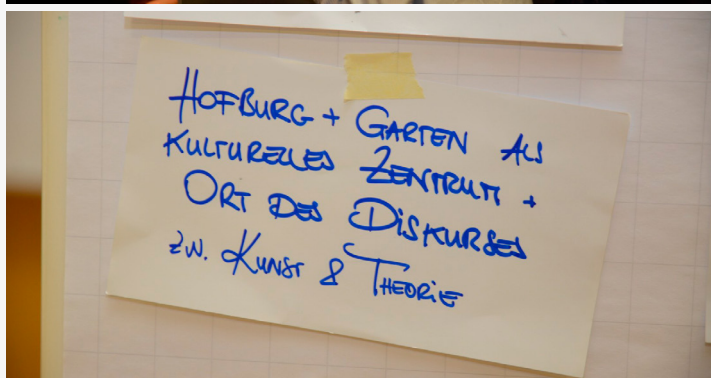 HOFBURG + GARTEN ALS
KULTURELLES ZENTRUM +
ORT DES DISKURSES
ZW. KUNST & THEORIE